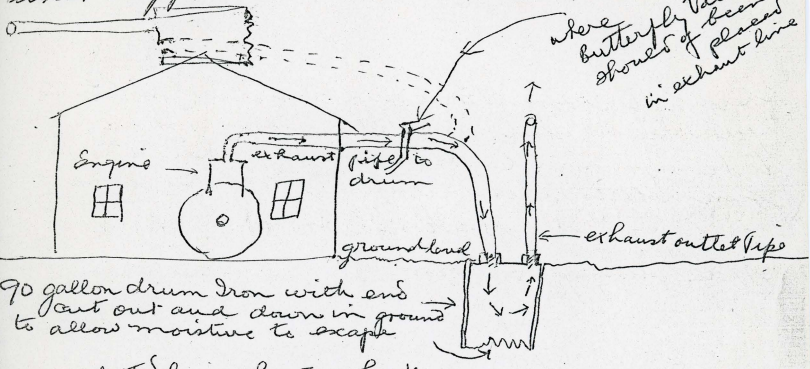 where
butterfly
should of been
placed
in exhaust line
Engine
exhaust pipe to
drum
ground level
exhaust outlet Pipe
90 gallon drum Iron with end
cut out and down in ground
to allow moisture to escape